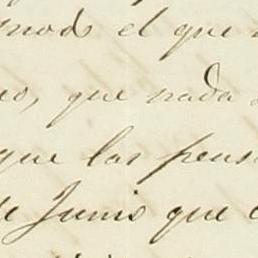 mods el que
eo, que nada
que las pens
de Junio que